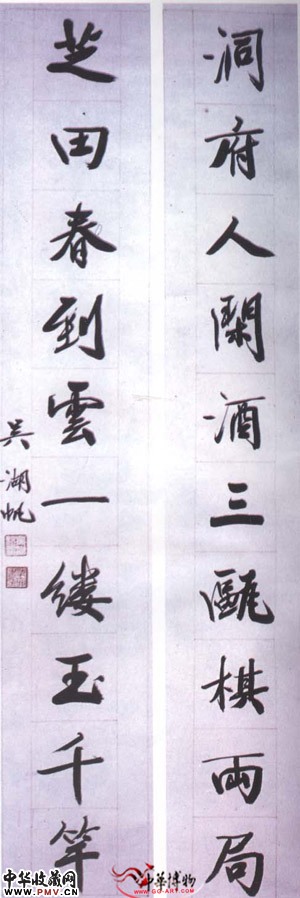 洞府人閑酒三甌棋兩局
芝田春到雲一縷玉千竿
吳湖帆
中华收藏网
www.PMV.cn
中華博物
www.GG-ART.com